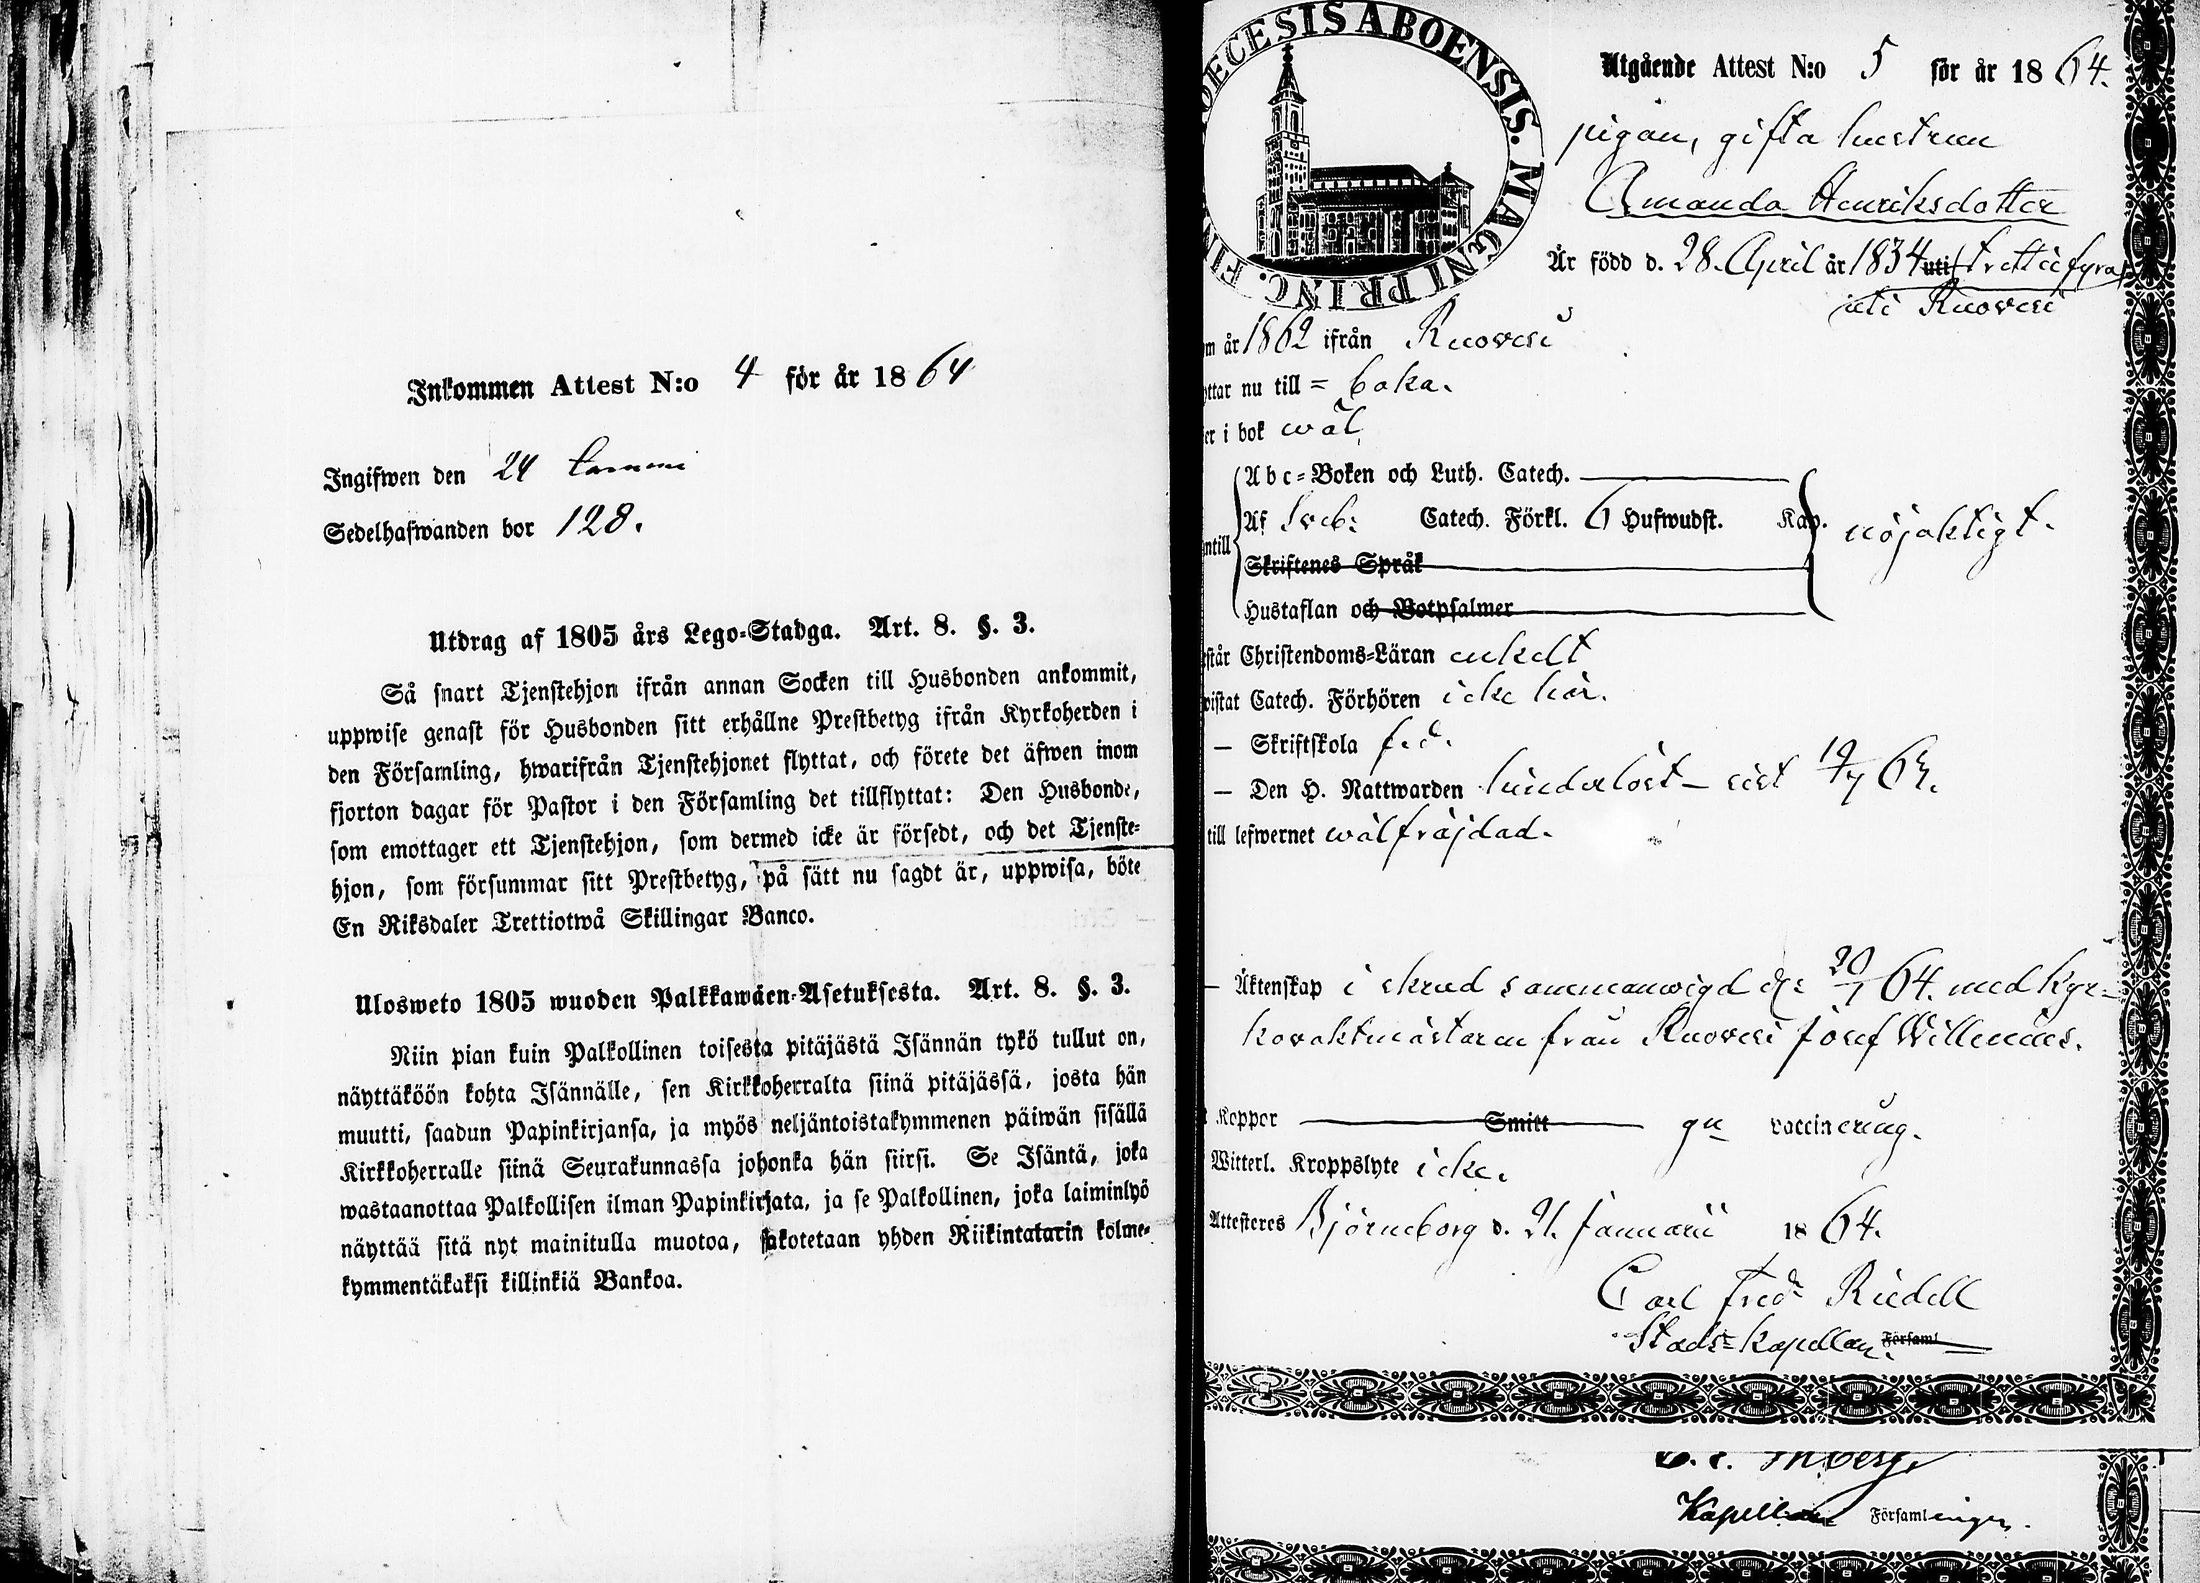 Inkommen Attest N:o 4 för år 1864
Ingifwen den 24
Sedelhafwanden bor 128.
Utdrag af 1805 års Lego-Stadga. Art. 8. §. 3.
Så snart Tjenstehjon ifrån annan Socken till Husbonden ankommit,
uppwise genast för Husbonden sitt erhållne Prestbetyg ifrån Kyrkoherden i
den Församling, hwarifrån Tjenstehjonet flyttat, och förete det äfwen inom
fjorton dagar för Pastor i den Församling det tillflyttat: Den Husbonde,
som emottager ett Tjenstehjon, som dermed icke är försedt, och det Tjenste-
hjon, som försummar sitt Prestbetyg, på sätt nu sagdt är, uppwisa, böte
En Riksdaler Trettiotwå Skillingar Banco.
Ulosweto 1805 wuoden Palkkawäen-Asetuksesta. Art. 8. §. 3.
Niin pian kuin Palkollinen toisesta pitäjästä Isännän tykö tullut on,
näyttäköön kohta Isännälle, sen Kirkkoherralta siinä pitäjässä, josta hän
muutti, saadun Papinkirjansa, ja myös neljäntoistakymmenen päiwän sisällä
Kirkkoherralle siinä Seurakunnassa johonka hän siirsi. Se Isäntä, joka
wastaanottaa Palkollisen ilman Papinkirjata, ja se Palkollinen, joka laiminlyö
näyttää sitä nyt mainitulla muotoa, sakotetaan yhden Riikintatarin kolme-
kymmentäkaksi killinkiä Bankoa.
OECESIS ABOENSIS. MAGNI PRINC. FIN
Utgående Attest N:o 5 för år 1864.
pigan, gifta hustrun
Amanda Henriksdotter
Är född d. 28. April år 1834 uti trettiofyra
uti Ruovesi
m år 1862 ifrån Ruovesi
yttar nu till = baka.
er i bok wäl
Abc-Boken och Luth. Catech.
Af Sveb: Catech. Förkl. 6 Hufwudst. Kap. nöjaktigt.
ntill
Skriftenes Språk
Hustaflan och Botpsalmer
står Christendoms-Läran enkelt
wistat Catech. Förhören icke här.
— Skriftskola
— Den H. Nattwarden hinderlöst — sist
till lefwernet wälfräjdad.
— Äktenskap i skrud sammanwigd d: 20/1 64. med kyr-
kovaktmästaren från Ruovesi Josef Willenius.
Koppor Smitt gn vaccinering.
Witterl. Kroppslyte icke.
Attesteres Björneborg d. 21. Januarii 1864.
Carl Fredr Riedell
Stads-kapellan. Församl
Kapellan Församlingen.